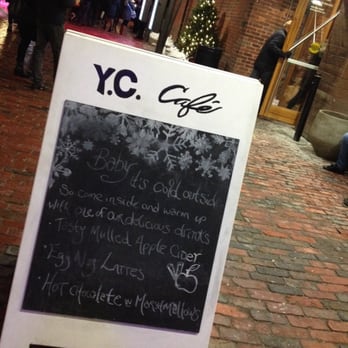 Y.C. Café
Baby
it's cold outside
So come inside and warm up
with one of our delicious drinks
Tasty Mulled Apple Cider
· Egg Nog Lattes
· Hot chocolate w Marshmallows